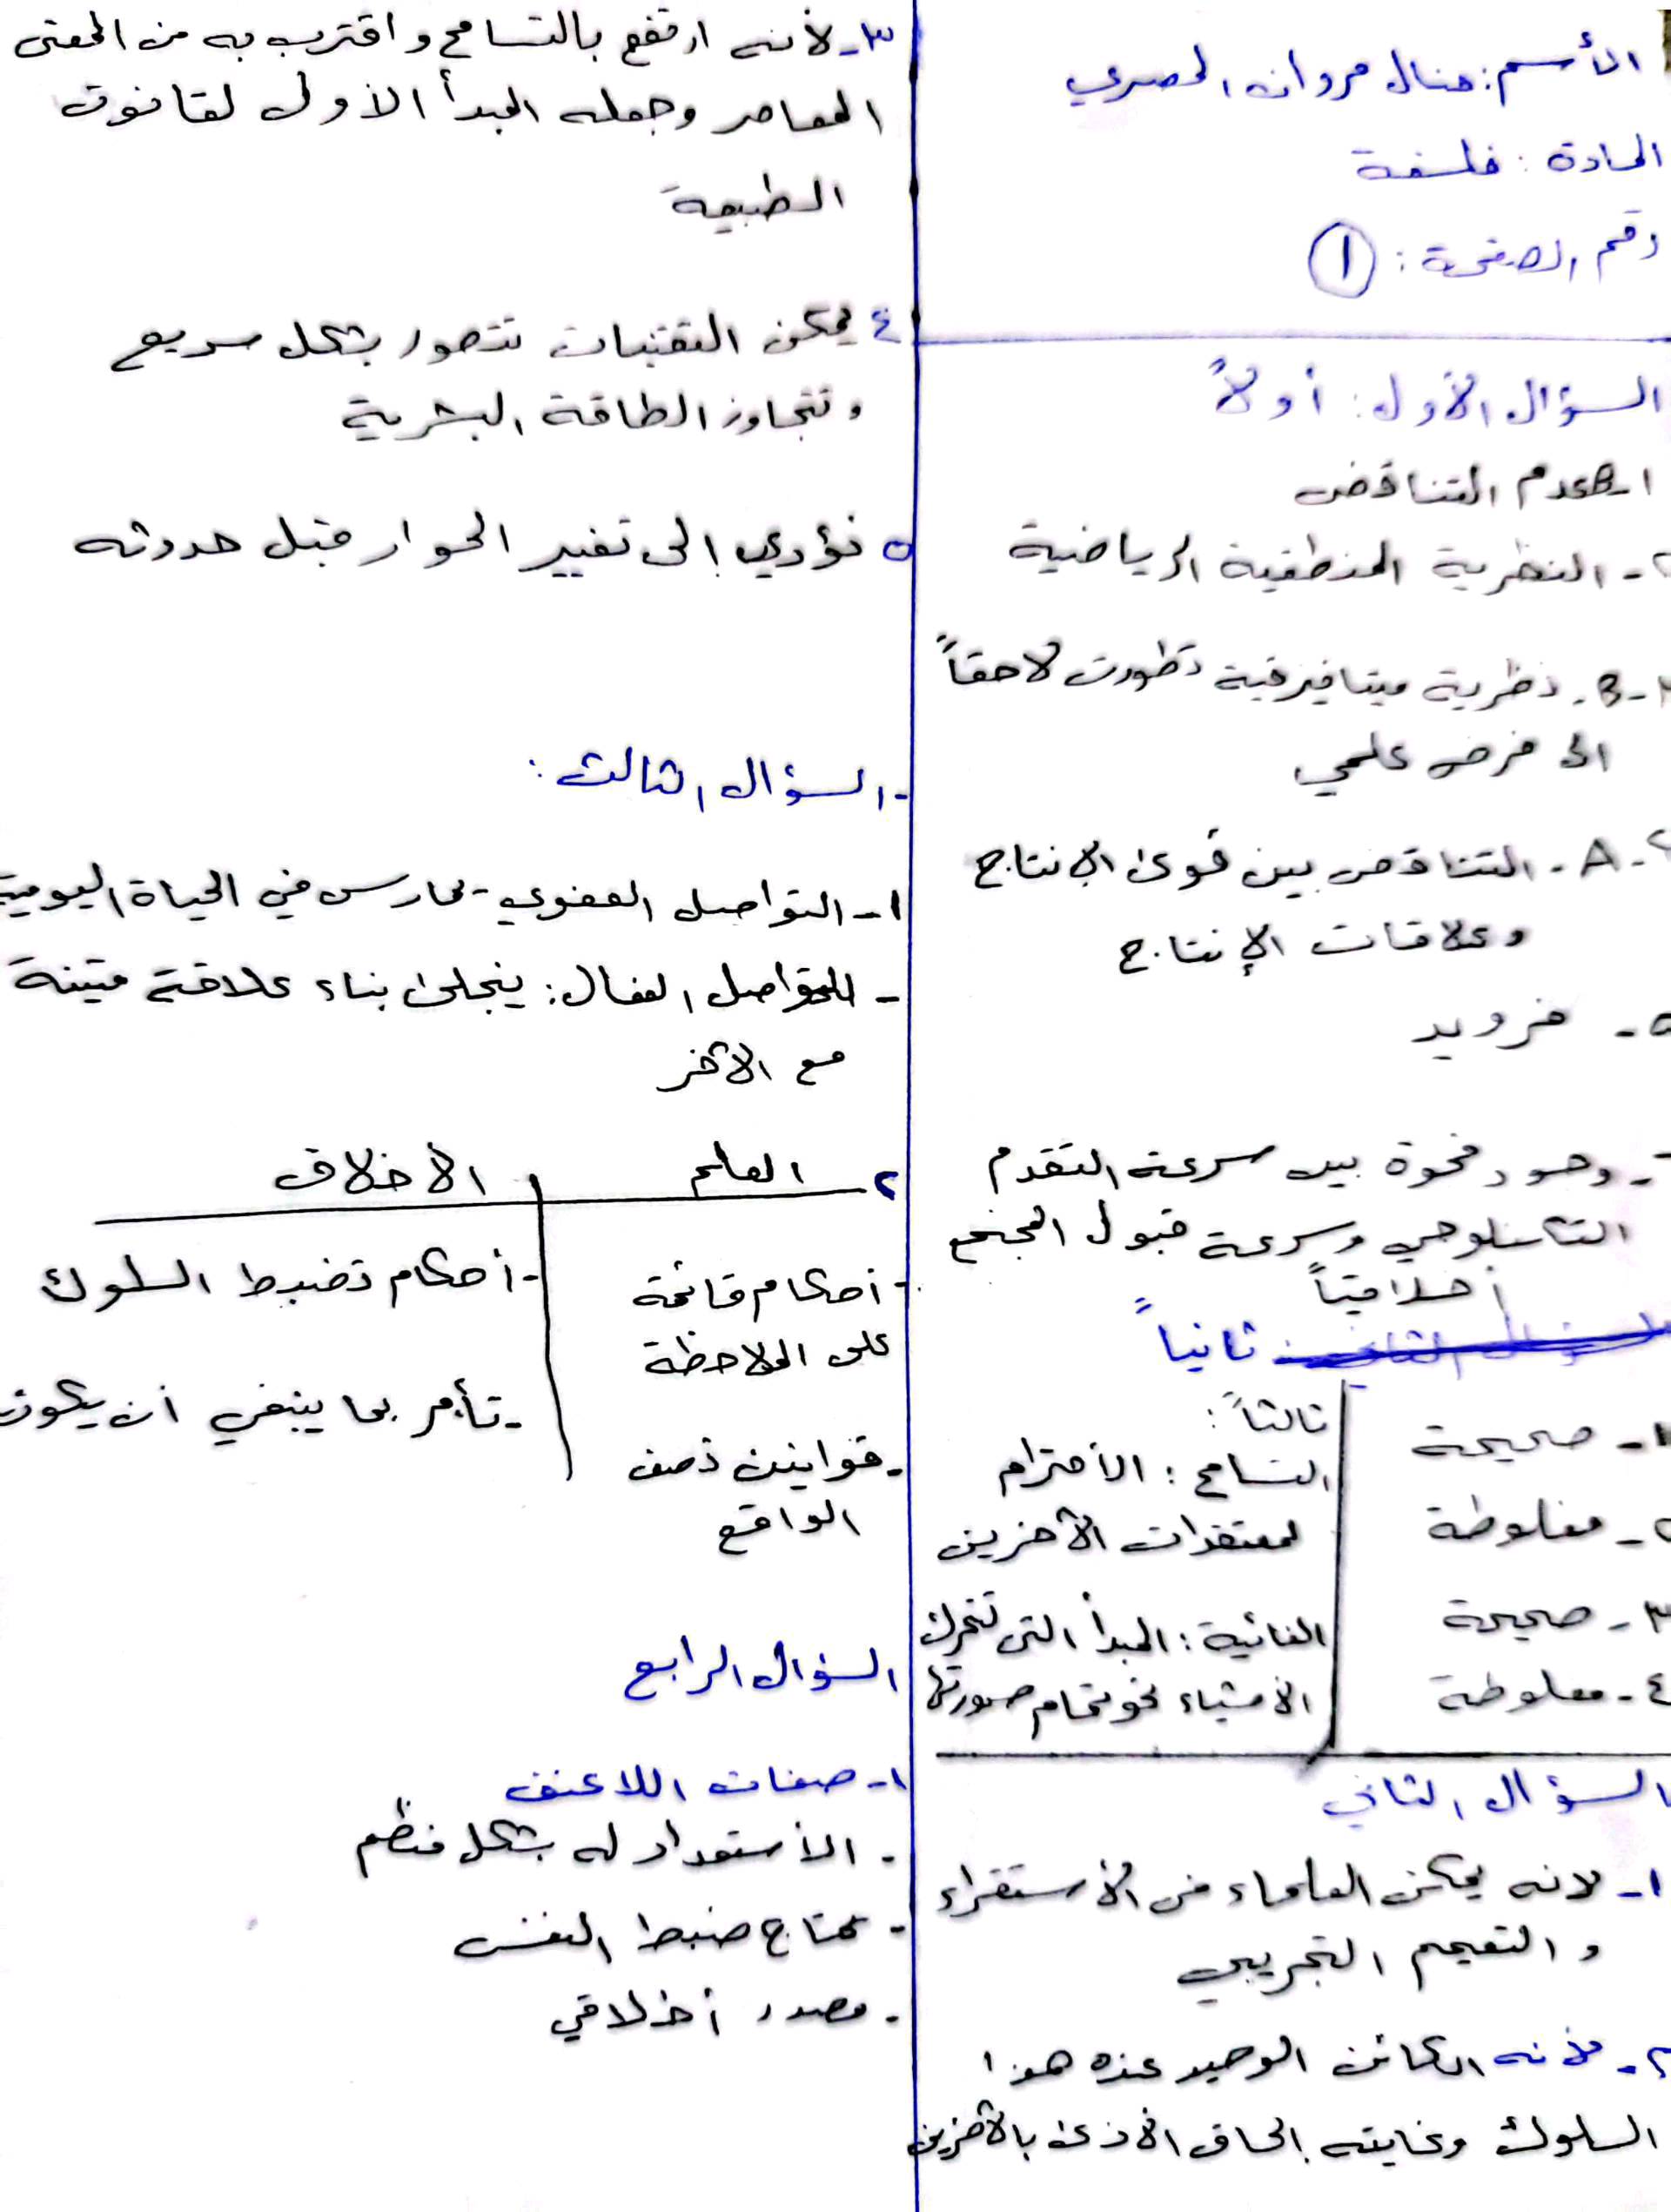 الأسم: منال مروان المصري
المادة: فلسفة
رقم الصفحة: ①
السؤال الأول: أولاً
١-B عدم التناقض
٢- النظرية المنطقية الرياضية
٣-B. نظرية ميتافيزيقية تطورت لاحقاً
الى فرض علمي
٤-A. التناقض بين قوى الإنتاج
وعلاقات الإنتاج
٥- فرويد
٦- وجود فجوة بين سرعة التقدم
التكنلوجي وسرعة قبول المجتمع
أخلاقياً
ثانياً:
١- صحيحة
٢- مغلوطة
٣- صحيحة
٤- مغلوطة
ثالثاً:
التسامح: الأحترام
لمعتقدات الآخرين
الغائية: المبدأ التي تتحرك
الأشياء نحو تمام صورتها
السؤال الثاني
١- لانه يمكن العلماء من الأستقراء
والتعميم التجريبي
٢- لأنه الكائن الوحيد عنده هذا
السلوك وغايته إلحاق الأذى بالآخرين
٣- لأنه ارتفع بالتسامح واقترب به من المعنى
المعاصر وجعله المبدأ الأول لقانون
الطبيعة
٤ يمكن التقنيات تتصور بشكل سريع
وتتجاوز الطاقة البشرية
٥ تؤدي إلى تغيير الحوار قبل حدوثه
- السؤال الثالث:
١- التواصل العفوي - يمارس في الحياة اليومية
- التواصل الفعال: يتجلى بناء علاقة متينة
مع الآخر
٢ العلم | الأخلاق
- أحكام قائمة
على الملاحظة
- قوانين تصف
الواقع
- أحكام تضبط السلوك
- تأمر بما ينبغي أن يكون
السؤال الرابع
١- صفات اللاعنف
- الأستعداد له بشكل منظم
- تحتاج ضبط النفس
- مصدر أخلاقي